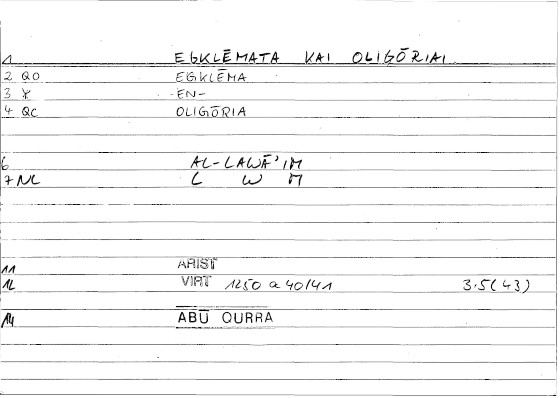 1 EGKLĒMATA KAI OLIGŌRIAI
2 QO EGKLĒMA
3 -EN-
4 QC OLIGŌRIA
6 AL-LAWĀ'IM
7 NL L W M
11 ARIST
12 VIRT 1250 a 40/41 3.5(43)
14 ABŪ QURRA